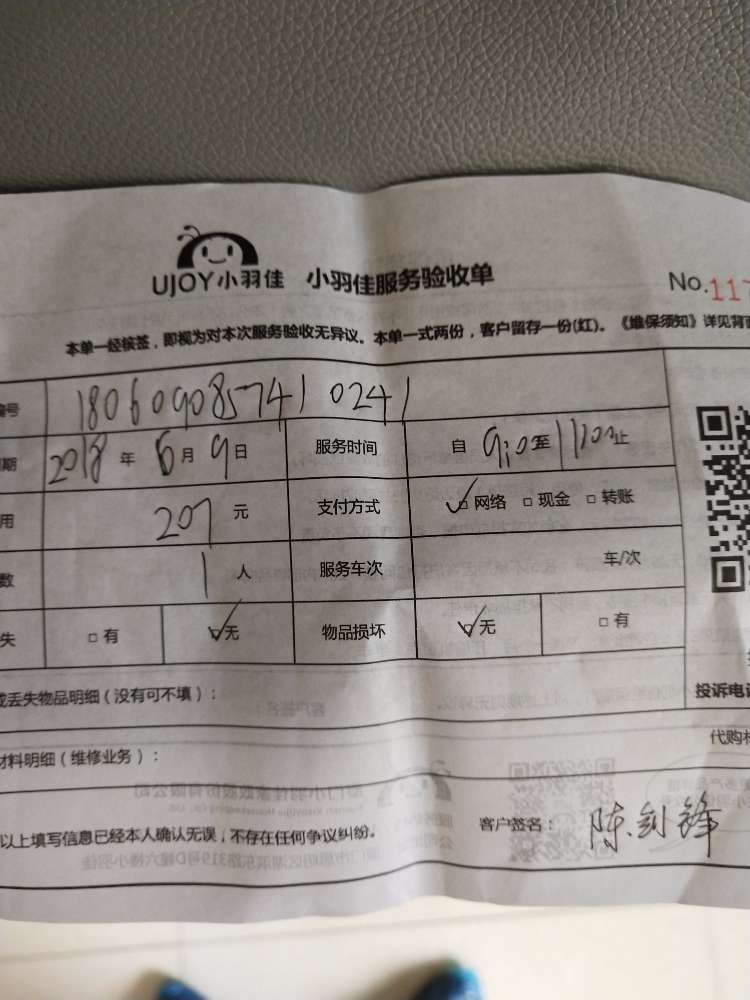 UJOY小羽佳 小羽佳服务验收单 No.117
本单一经核签，即视为对本次服务验收无异议。本单一式两份，客户留存一份(红)。《维保须知》详见背面
编号 180609085741 0241
期 2018 年 6 月 9 日 服务时间 自 9:0 至 11:00 止
用 207 元 支付方式 ☑ 网络 □ 现金 □ 转账
数 1 人 服务车次 车/次
失 □ 有 ☑ 无 物品损坏 ☑ 无 □ 有
或丢失物品明细（没有可不填）： 投诉电话
材料明细（维修业务）： 代购材
以上填写信息已经本人确认无误，不存在任何争议纠纷。 客户签名： 陈剑锋